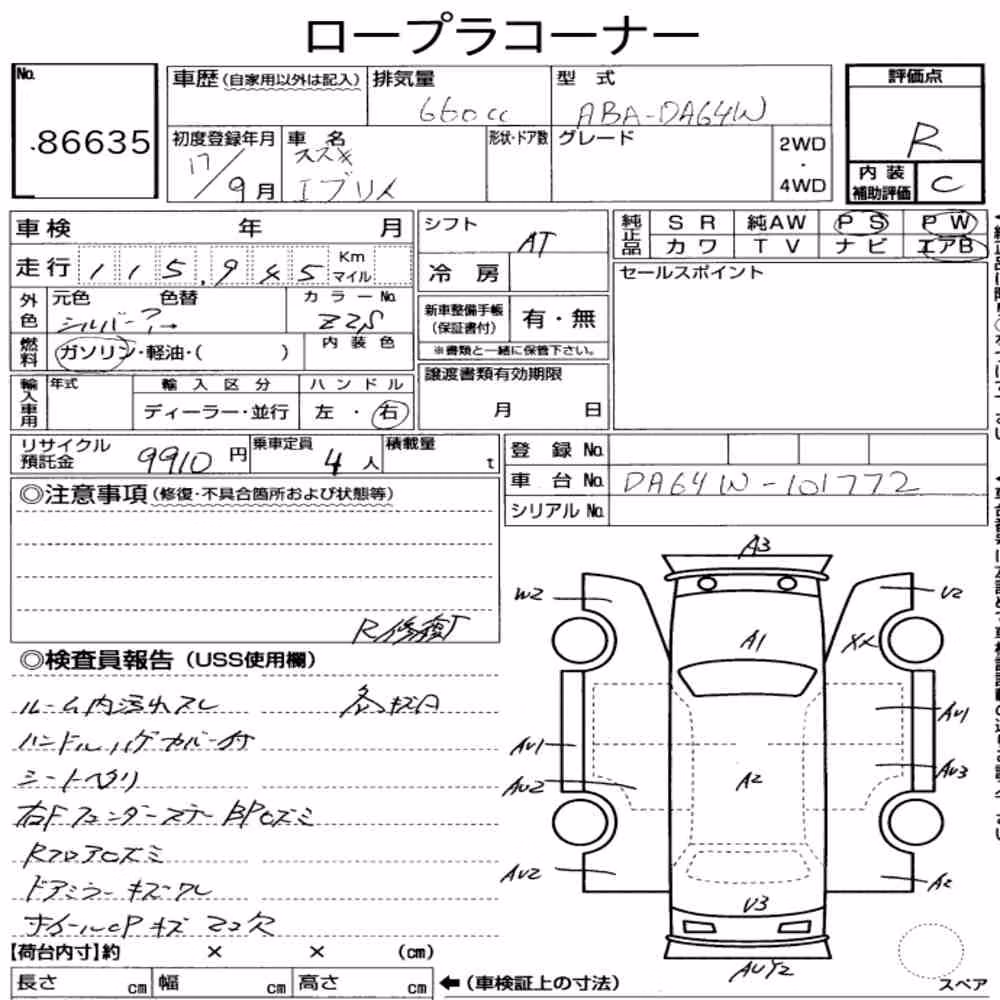 ロープラコーナー
No.
86635
車歴(自家用以外は記入)
排気量
660cc
型 式
ABA-DA64W
評価点
R
内装
補助評価
C
初度登録年月
17/9月
車 名
スズキ
エブリイ
形状・ドア数
グレード
2WD
・
4WD
車検 年 月
走行 115,945 Km
マイル
シフト
AT
冷 房
純正品
SR 純AW PS PW
カワ TV ナビ エアB
セールスポイント
外色
元色 色替
シルバー?→
カラーNo.
Z2S
内装色
燃料
ガソリン・軽油・( )
新車整備手帳
(保証書付)
有・無
※書類と一緒に保管下さい。
輸入車用
年式
輸入区分
ディーラー・並行
ハンドル
左・右
譲渡書類有効期限
月 日
リサイクル
預託金
9910円
乗車定員
4人
積載量
t
登 録 No.
車 台 No.
DA64W-101772
シリアル No.
◎注意事項(修復・不具合箇所および状態等)
R修復
◎検査員報告(USS使用欄)
ルーム内汚れスレ
ハンドルハゲカバー付
シートヘタリ
右Fフェンダーステー BPロズミ
Rフロアロズミ
ドアミラー キズワレ
ホイールCPキズ マコ欠
【荷台内寸】約 × × (cm)
長さ cm 幅 cm 高さ cm
←(車検証上の寸法)
A3
W2
U2
A1
XX
AU1
AU1
AU2
A2
AU3
AU2
A2
U3
AUY2
スペア